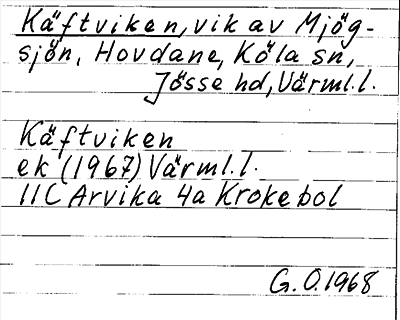 Käftviken, vik av Mjög-
sjön, Hovdane, Köla sn,
Jösse hd, Värml.l.
Käftviken
ek (1967) Värml.l.
11C Arvika 4a Krokebol
G.O.1968